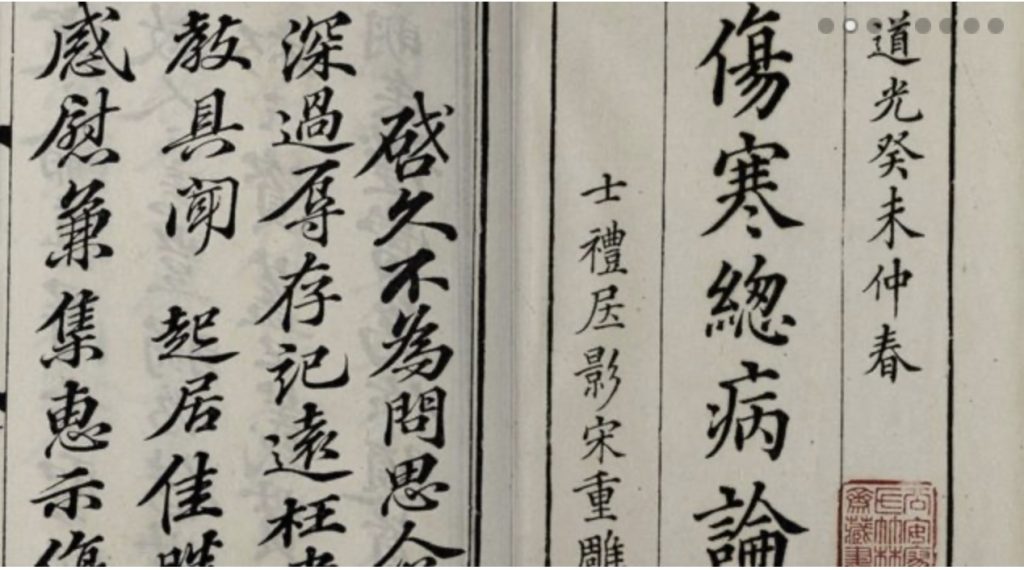 道光癸未仲春
傷寒總病論
士禮居影宋重雕
啓久不為問思人
深過辱存記遠枉
教具聞 起居佳
感慰兼集惠示傷